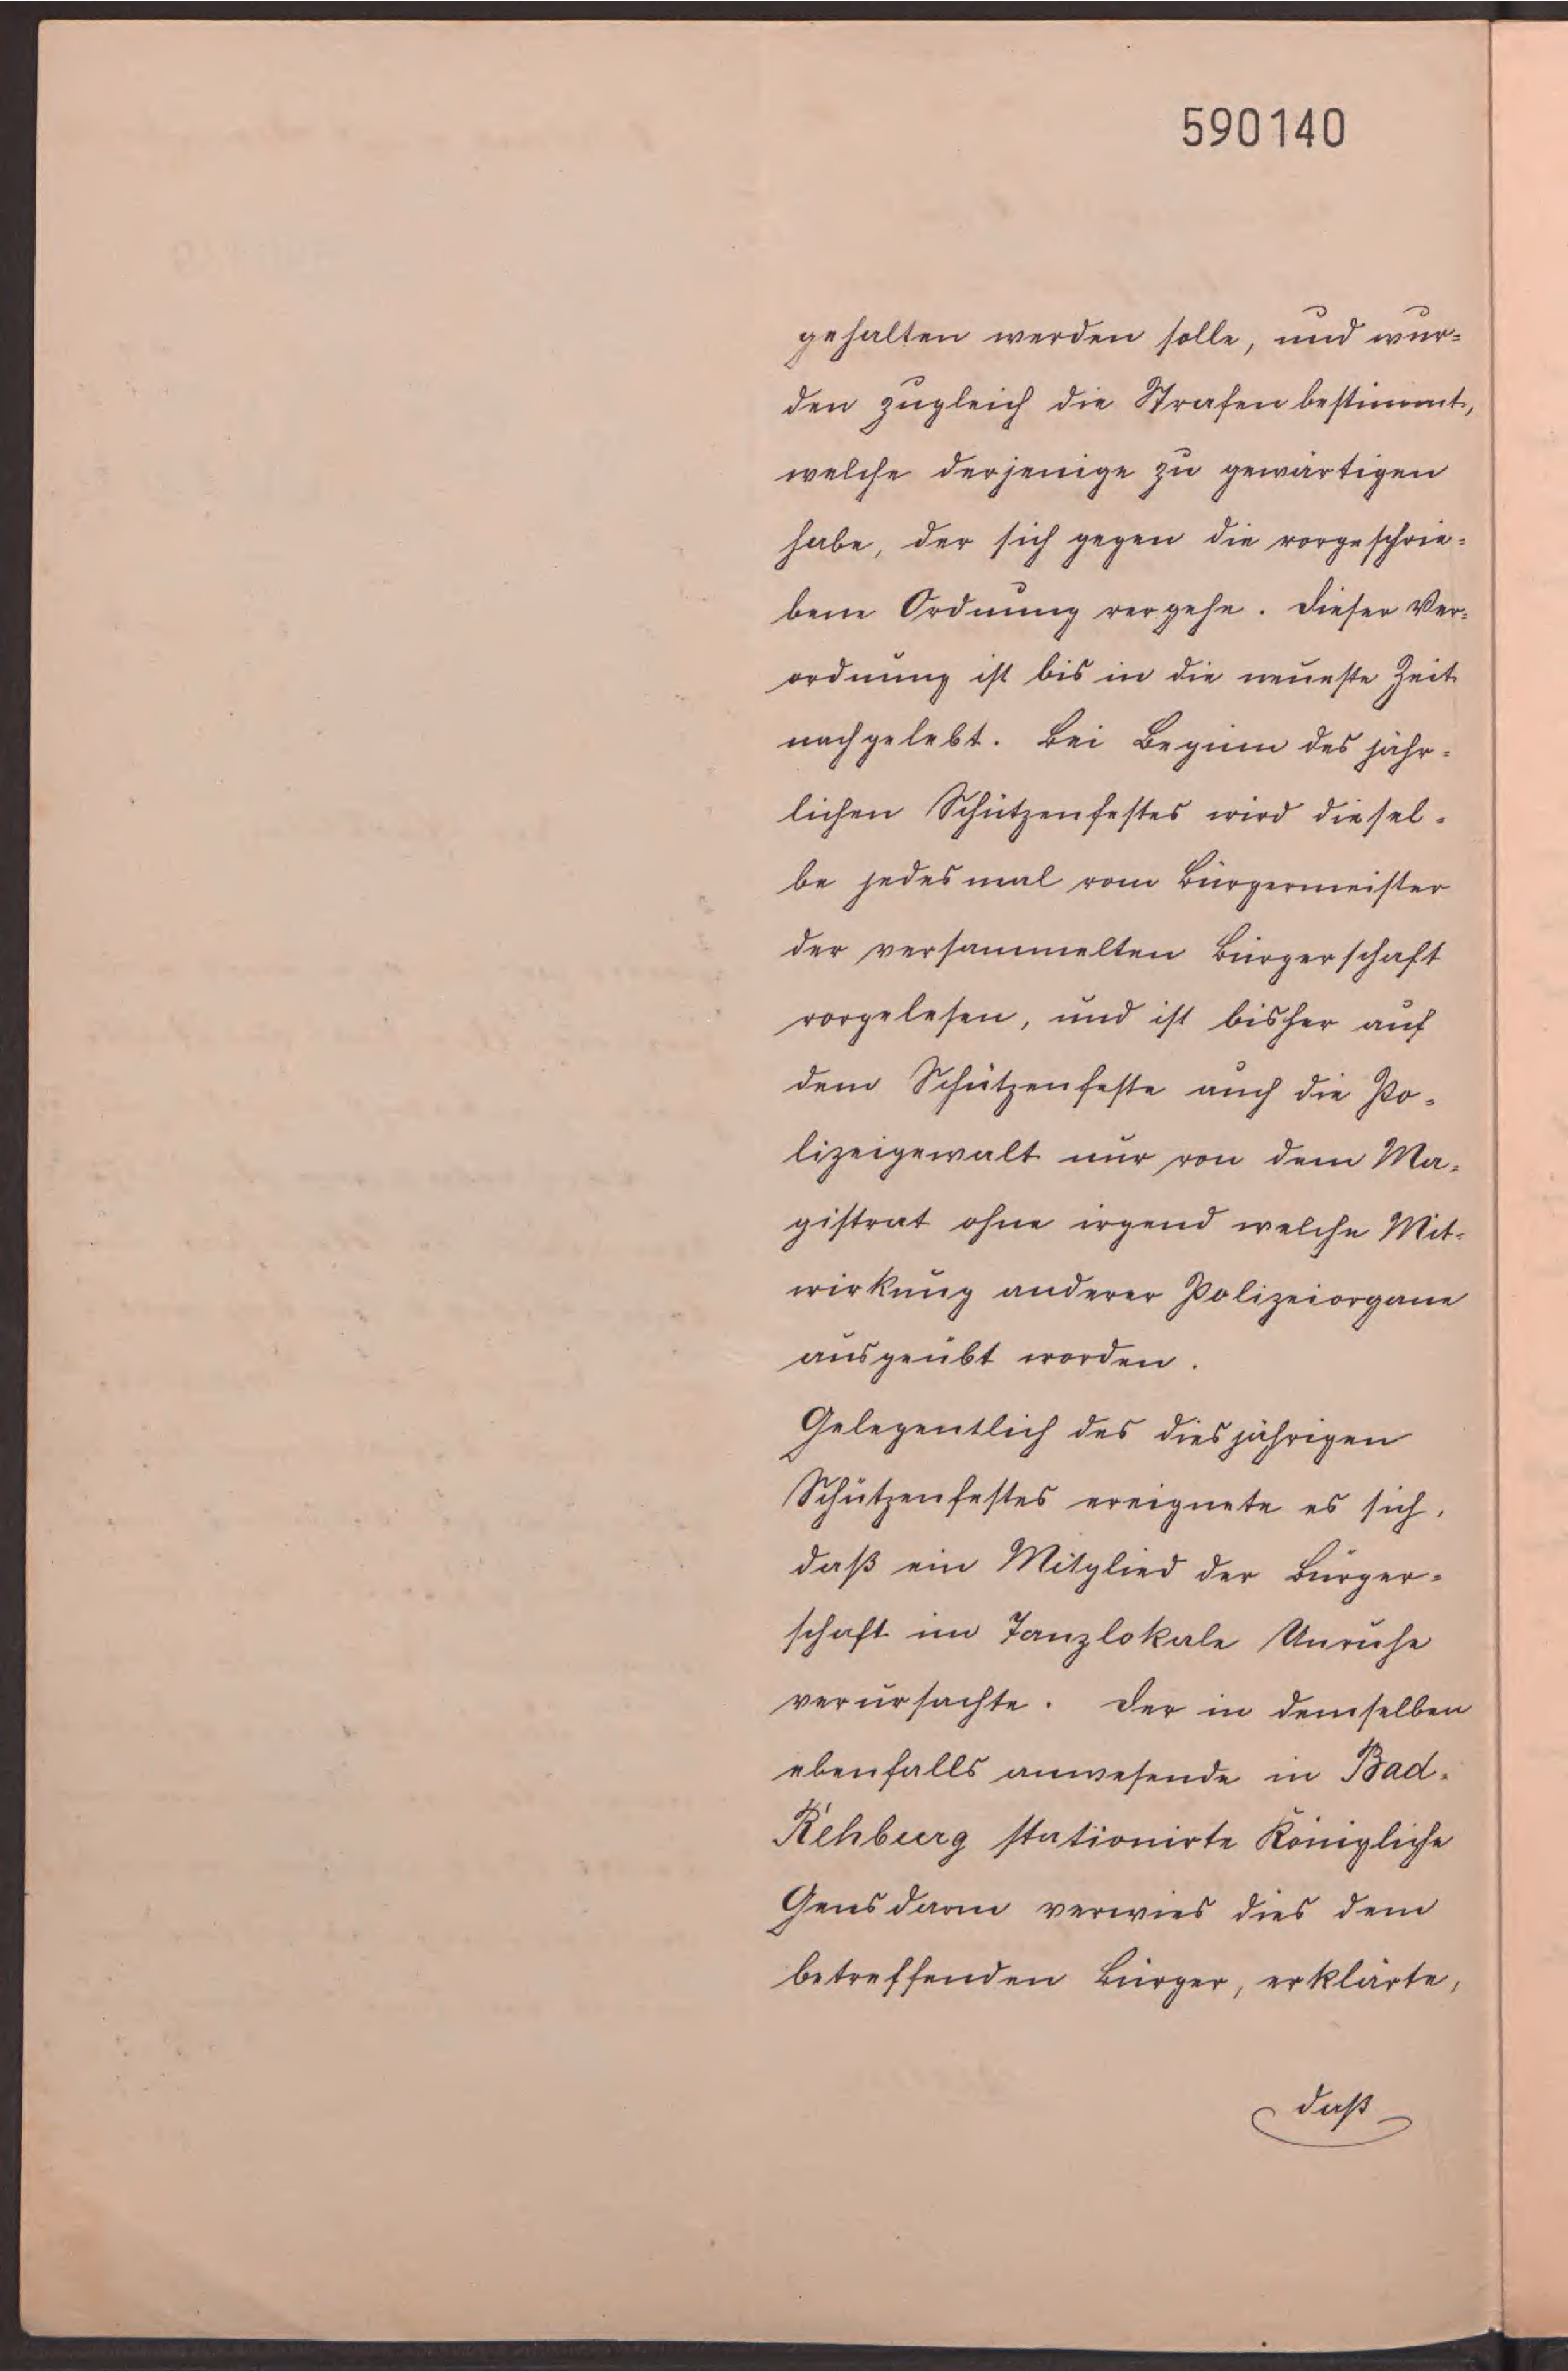 590140
gehalten werden solle, und wur=
den zugleich die Strafen bestimmt,
welche derjenige zu gewärtigen
habe, der sich gegen die vorgeschrie=
bene Ordnung vergehe. Dieser Ver=
ordnung ist bis in die neueste Zeit
nachgelebt. Bei Beginn des jähr=
lichen Schützenfestes wird diesel=
be jedesmal vom Bürgermeister
der versammelten Bürgerschaft
vorgelesen, und ist bisher auf
dem Schützenfeste auch die Po=
lizeigewalt nur von dem Ma=
gistrat ohne irgend welche Mit=
wirkung anderer Polizeiorgane
ausgeübt worden.
Gelegentlich des diesjährigen
Schützenfestes ereignete es sich,
daß ein Mitglied der Bürger=
schaft im Tanzlokale Unruhe
verursachte. Der in demselben
ebenfalls anwesende in Bad=
Rehburg stationirte Königliche
Gensdarm verwies dies dem
betreffenden Bürger, erklärte,
daß